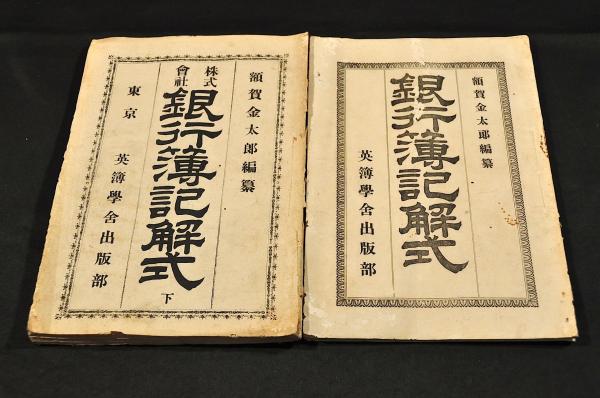 額賀金太郎編纂
株式會社
銀行簿記解式
下
東京
英簿學舍出版部
額賀金太郎編纂
銀行簿記解式
英簿學舍出版部